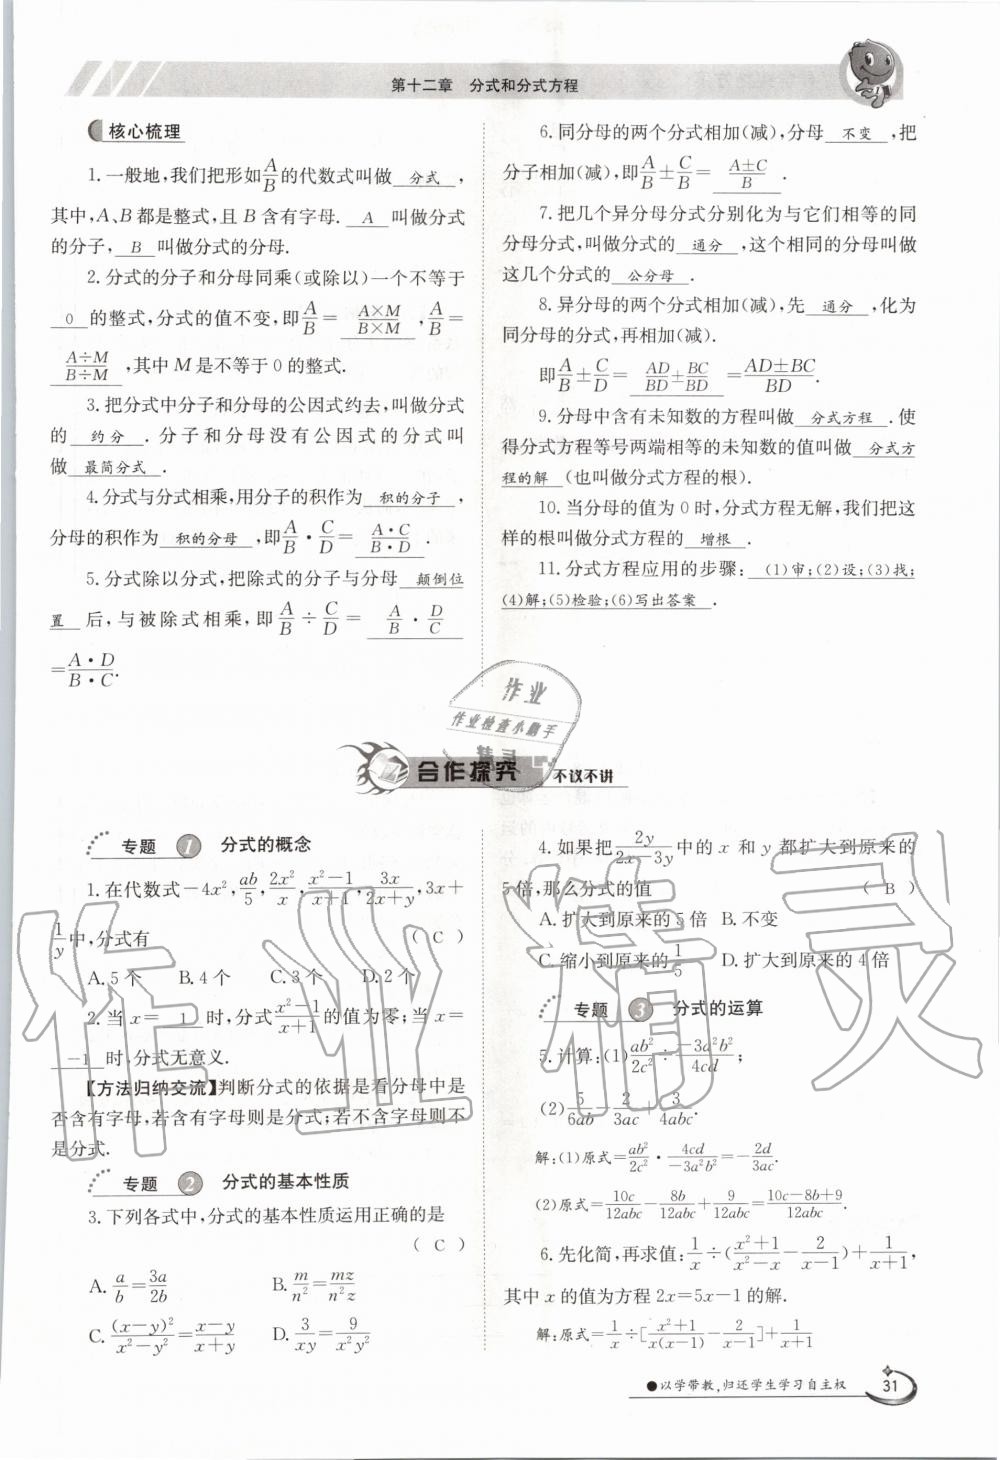 第十二章 分式和分式方程
核心梳理
1.一般地,我们把形如A/B的代数式叫做 分式 ,
其中,A、B都是整式,且B含有字母. A 叫做分式
的分子, B 叫做分式的分母.
2.分式的分子和分母同乘(或除以)一个不等于
0 的整式,分式的值不变,即A/B= (A×M)/(B×M) ,A/B=
(A÷M)/(B÷M) ,其中M是不等于0的整式.
3.把分式中分子和分母的公因式约去,叫做分式
的 约分 .分子和分母没有公因式的分式叫
做 最简分式 .
4.分式与分式相乘,用分子的积作为 积的分子 ,
分母的积作为 积的分母 ,即A/B·C/D= (A·C)/(B·D) .
5.分式除以分式,把除式的分子与分母 颠倒位
置 后,与被除式相乘,即A/B÷C/D= A/B·D/C
=(A·D)/(B·C).
6.同分母的两个分式相加(减),分母 不变 ,把
分子相加(减),即A/B±C/B= (A±C)/B .
7.把几个异分母分式分别化为与它们相等的同
分母分式,叫做分式的 通分 ,这个相同的分母叫做
这几个分式的 公分母 .
8.异分母的两个分式相加(减),先 通分 ,化为
同分母的分式,再相加(减).
即A/B±C/D= AD/BD±BC/BD =(AD±BC)/BD.
9.分母中含有未知数的方程叫做 分式方程 .使
得分式方程等号两端相等的未知数的值叫做 分式方
程的解 (也叫做分式方程的根).
10.当分母的值为0时,分式方程无解,我们把这
样的根叫做分式方程的 增根 .
11.分式方程应用的步骤: (1)审;(2)设;(3)找;
(4)解;(5)检验;(6)写出答案 .
作业
作业检查小助手
合作探究 不议不讲
专题 1 分式的概念
1.在代数式-4x²,ab/5,2x²/x,(x²-1)/(x+1),3x/(2x+y),3x+
1/y中,分式有 ( C )
A.5个 B.4个 C.3个 D.2个
2.当x= 1 时,分式(x²-1)/(x+1)的值为零;当x=
-1 时,分式无意义.
【方法归纳交流】判断分式的依据是看分母中是
否含有字母,若含有字母则是分式;若不含字母则不
是分式.
专题 2 分式的基本性质
3.下列各式中,分式的基本性质运用正确的是
( C )
A.a/b=3a/2b B.m/n²=mz/n²z
C.(x-y)²/(x²-y²)=(x-y)/(x+y) D.3/xy=9/x²y²
4.如果把2y/(2x-3y)中的x和y都扩大到原来的
5倍,那么分式的值 ( B )
A.扩大到原来的5倍 B.不变
C.缩小到原来的1/5 D.扩大到原来的4倍
专题 3 分式的运算
5.计算:(1)ab²/2c²÷(-3a²b²)/4cd;
(2)5/6ab-2/3ac+3/4abc.
解:(1)原式=ab²/2c²·4cd/(-3a²b²)=-2d/3ac.
(2)原式=10c/12abc-8b/12abc+9/12abc=(10c-8b+9)/12abc.
6.先化简,再求值:1/x÷((x²+1)/(x²-x)-2/(x-1))+1/(x+1),
其中x的值为方程2x=5x-1的解.
解:原式=1/x÷[(x²+1)/x(x-1)-2/(x-1)]+1/(x+1)
●以学带教,归还学生学习自主权 31
作业精灵